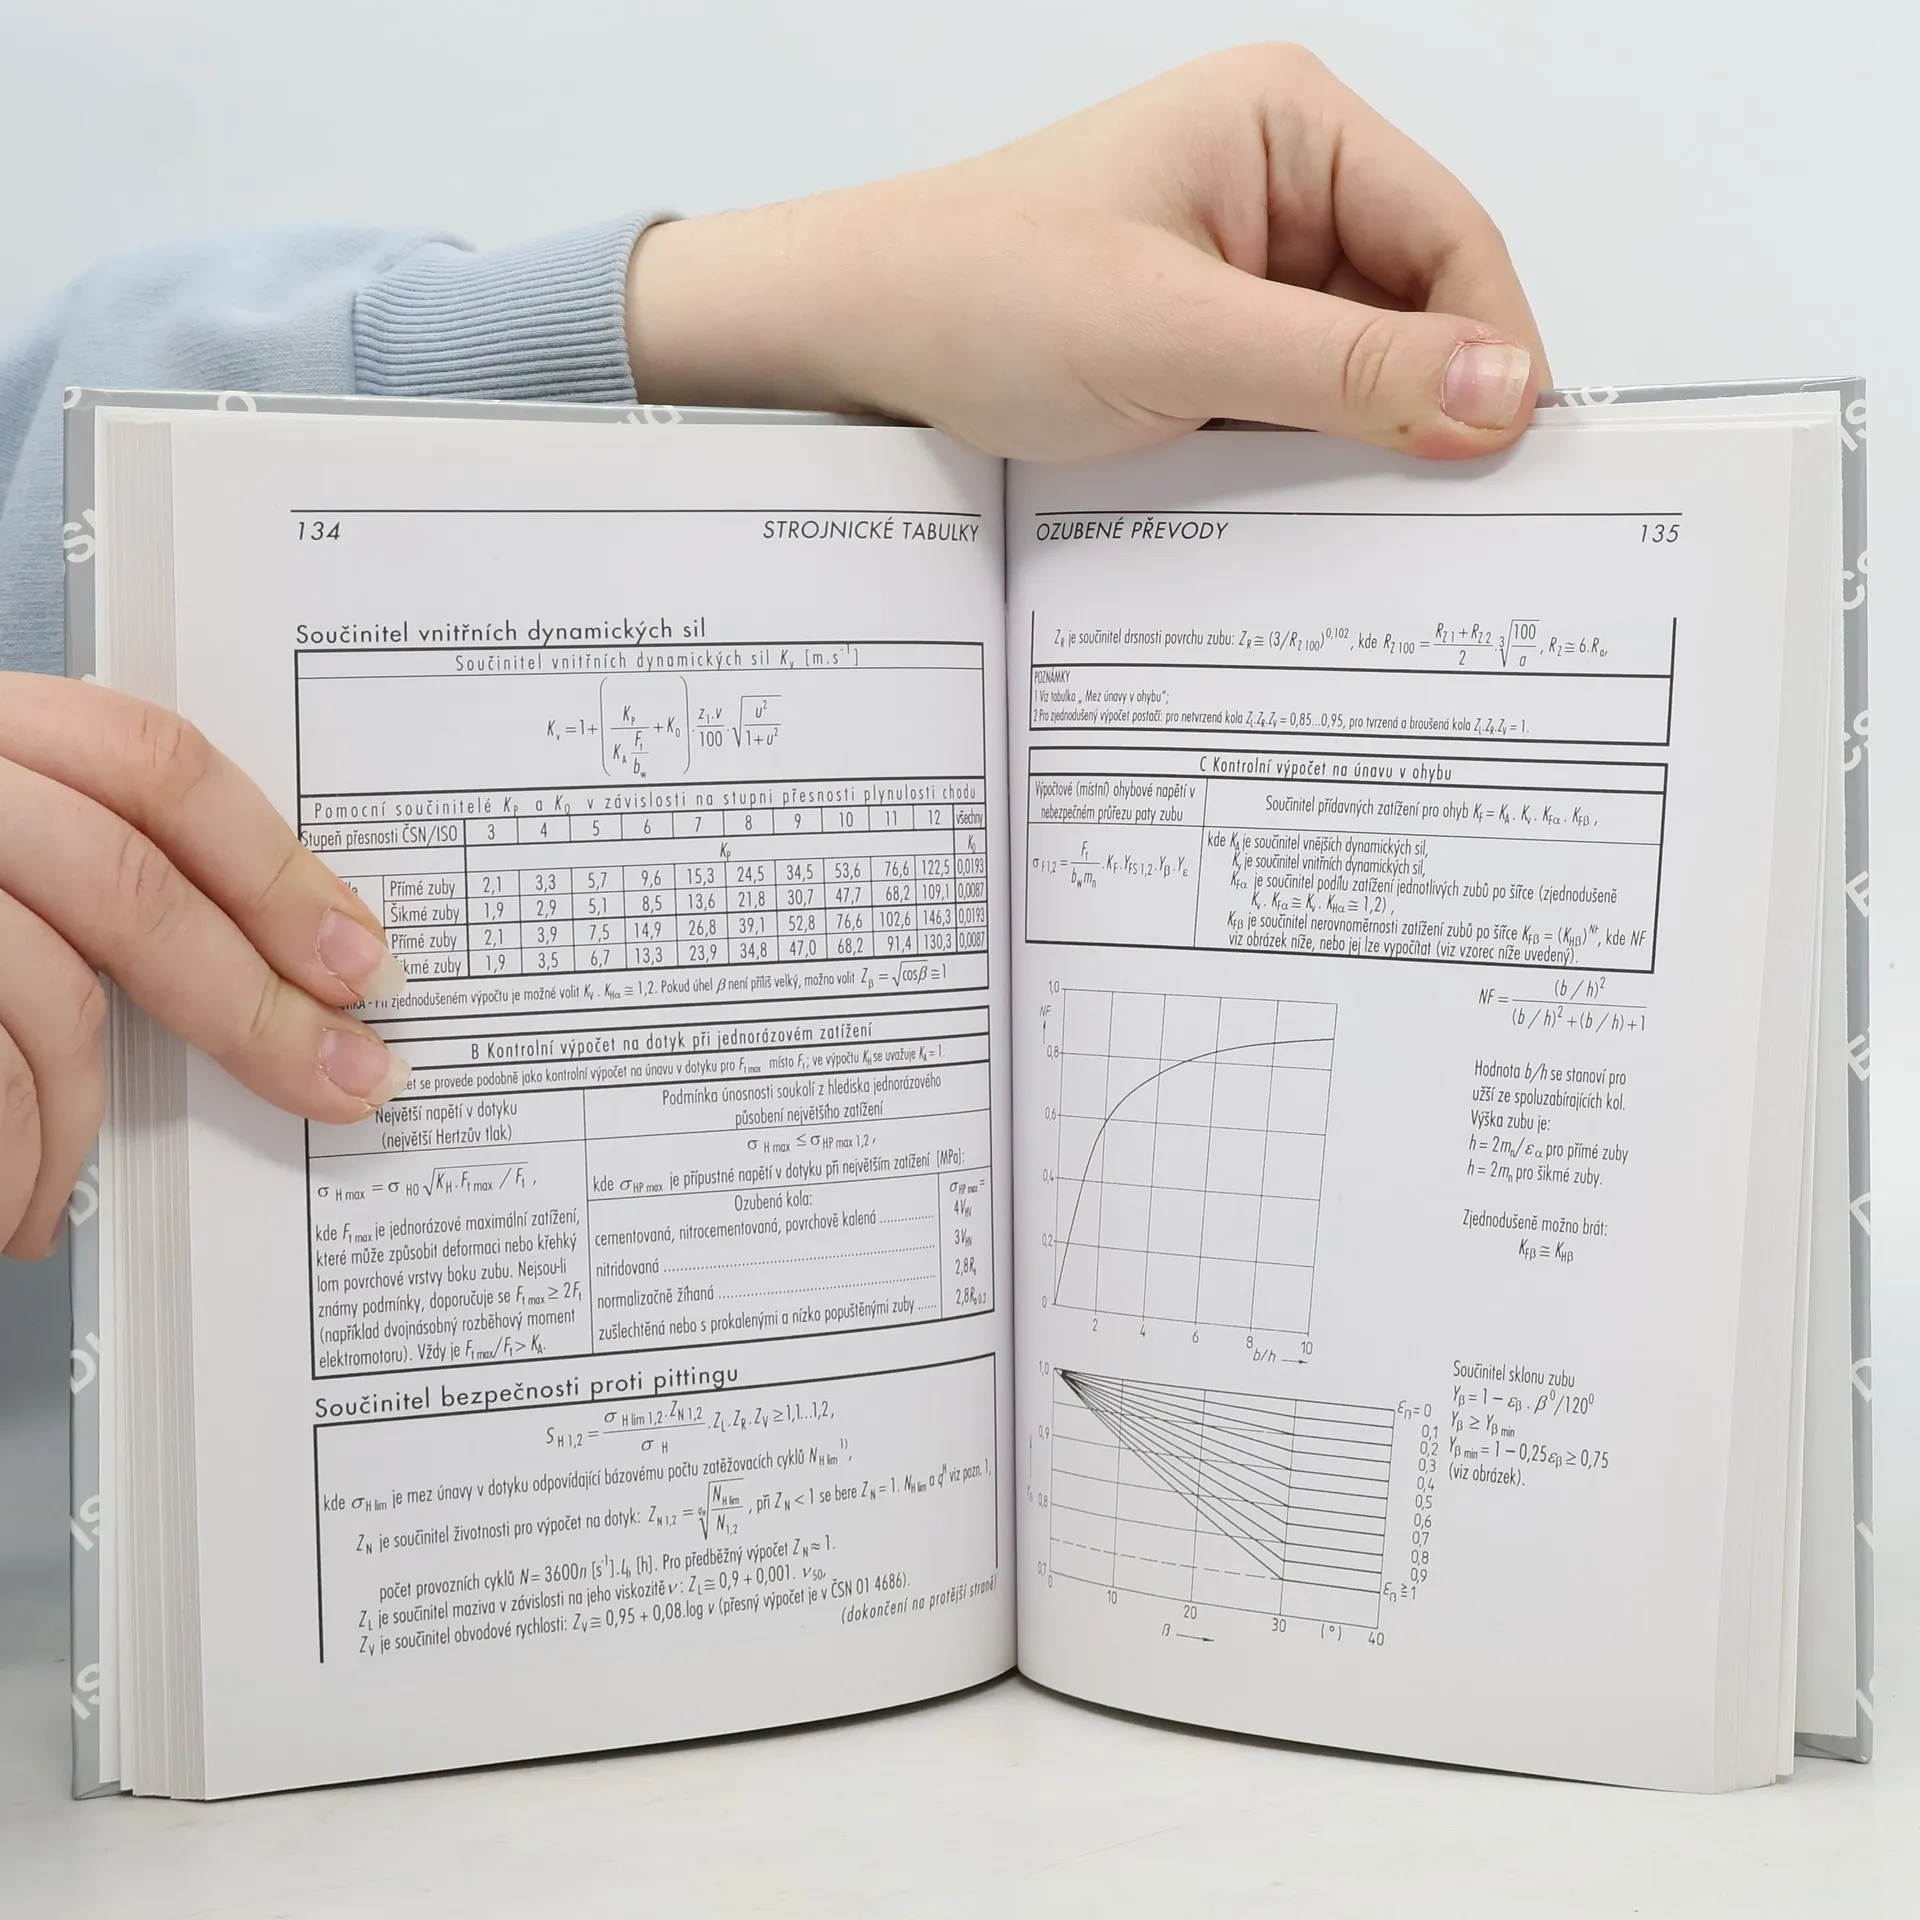 134 STROJNICKÉ TABULKY
Součinitel vnitřních dynamických sil
Součinitel vnitřních dynamických sil Kv [m.s⁻¹]
Kv = 1 + ( KP / (KA Ft/bw) + KQ ) . z1.v/100 . √(u²/(1+u²))
Pomocní součinitelé KP a KQ v závislosti na stupni přesnosti plynulosti chodu
Stupeň přesnosti ČSN/ISO 3 4 5 6 7 8 9 10 11 12 všechny
KP KQ
Přímé zuby 2,1 3,3 5,7 9,6 15,3 24,5 34,5 53,6 76,6 122,5 0,0193
Šikmé zuby 1,9 2,9 5,1 8,5 13,6 21,8 30,7 47,7 68,2 109,1 0,0087
Přímé zuby 2,1 3,9 7,5 14,9 26,8 39,1 52,8 76,6 102,6 146,3 0,0193
kmé zuby 1,9 3,5 6,7 13,3 23,9 34,8 47,0 68,2 91,4 130,3 0,0087
zjednodušeném výpočtu je možné volit Kv . KHα ≅ 1,2. Pokud úhel β není příliš velký, možno volit Zβ = √cosβ ≅ 1
B Kontrolní výpočet na dotyk při jednorázovém zatížení
se provede podobně jako kontrolní výpočet na únavu v dotyku pro Ft max místo Ft ; ve výpočtu KH se uvažuje KA = 1.
Největší napětí v dotyku
(největší Hertzův tlak)
Podmínka únosnosti soukolí z hlediska jednorázového
působení největšího zatížení
σH max = σH0 √(KH . Ft max / Ft) ,
kde Ft max je jednorázové maximální zatížení,
které může způsobit deformaci nebo křehký
lom povrchové vrstvy boku zubu. Nejsou-li
známy podmínky, doporučuje se Ft max ≥ 2Ft
(například dvojnásobný rozběhový moment
elektromotoru). Vždy je Ft max/Ft > KA.
σH max ≤ σHP max 1,2 ,
kde σHP max je přípustné napětí v dotyku při největším zatížení [MPa]:
Ozubená kola: σHP max =
cementovaná, nitrocementovaná, povrchově kalená .............. 4VHV
nitridovaná .............. 3VHV
normalizačně žíhaná .............. 2,8Re
zušlechtěná nebo s prokalenými a nízko popuštěnými zuby ...... 2,8Rp0,2
Součinitel bezpečnosti proti pittingu
SH 1,2 = (σH lim 1,2 . ZN 1,2 / σH) . ZL . ZR . ZV ≥ 1,1...1,2,
kde σH lim je mez únavy v dotyku odpovídající bázovému počtu zatěžovacích cyklů NH lim 1),
ZN je součinitel životnosti pro výpočet na dotyk: ZN 1,2 = qH√(NH lim / N1,2) , při ZN < 1 se bere ZN = 1. NH lim a qH viz pozn. 1,
počet provozních cyklů N = 3600n [s⁻¹].Lh [h]. Pro předběžný výpočet ZN ≈ 1.
ZL je součinitel maziva v závislosti na jeho viskozitě ν : ZL ≅ 0,9 + 0,001. ν50,
ZV je součinitel obvodové rychlosti: ZV ≅ 0,95 + 0,08.log v (přesný výpočet je v ČSN 01 4686).
(dokončení na protější straně)
OZUBENÉ PŘEVODY 135
ZR je součinitel drsnosti povrchu zubu: ZR ≅ (3/RZ 100)^0,102 , kde RZ 100 = (RZ 1 + RZ 2)/2 . ³√(100/a) , RZ ≅ 6.Ra,
POZNÁMKY
1 Viz tabulka „ Mez únavy v ohybu“;
2 Pro zjednodušený výpočet postačí: pro netvrzená kola ZL.ZR.ZV = 0,85...0,95, pro tvrzená a broušená kola ZL.ZR.ZV = 1.
C Kontrolní výpočet na únavu v ohybu
Výpočtové (místní) ohybové napětí v
nebezpečném průřezu paty zubu
Součinitel přídavných zatížení pro ohyb KF = KA . Kv . KFα . KFβ ,
σF1,2 = Ft/(bw mn) . KF . YFS 1,2 . Yβ . Yε
kde KA je součinitel vnějších dynamických sil,
Kv je součinitel vnitřních dynamických sil,
KFα je součinitel podílu zatížení jednotlivých zubů po šířce (zjednodušeně
Kv . KFα ≅ Kv . KHα ≅ 1,2) ,
KFβ je součinitel nerovnoměrnosti zatížení zubů po šířce KFβ = (KHβ)^NF, kde NF
viz obrázek níže, nebo jej lze vypočítat (viz vzorec níže uvedený).
1,0
NF
0,8
0,6
0,4
0,2
0
2 4 6 8 10
b/h
NF = (b / h)² / ((b / h)² + (b / h) + 1)
Hodnota b/h se stanoví pro
užší ze spoluzabírajících kol.
Výška zubu je:
h = 2mn/εα pro přímé zuby
h = 2mn pro šikmé zuby.
Zjednodušeně možno brát:
KFβ ≅ KHβ
1,0
0,9
Yβ
0,8
0,7
0 10 20 30 (°) 40
β
εβ = 0
0,1
0,2
0,3
0,4
0,5
0,6
0,7
0,8
0,9
εβ ≧ 1
Součinitel sklonu zubu
Yβ = 1 − εβ . β⁰/120⁰
Yβ ≥ Yβ min
Yβ min = 1 − 0,25εβ ≥ 0,75
(viz obrázek).